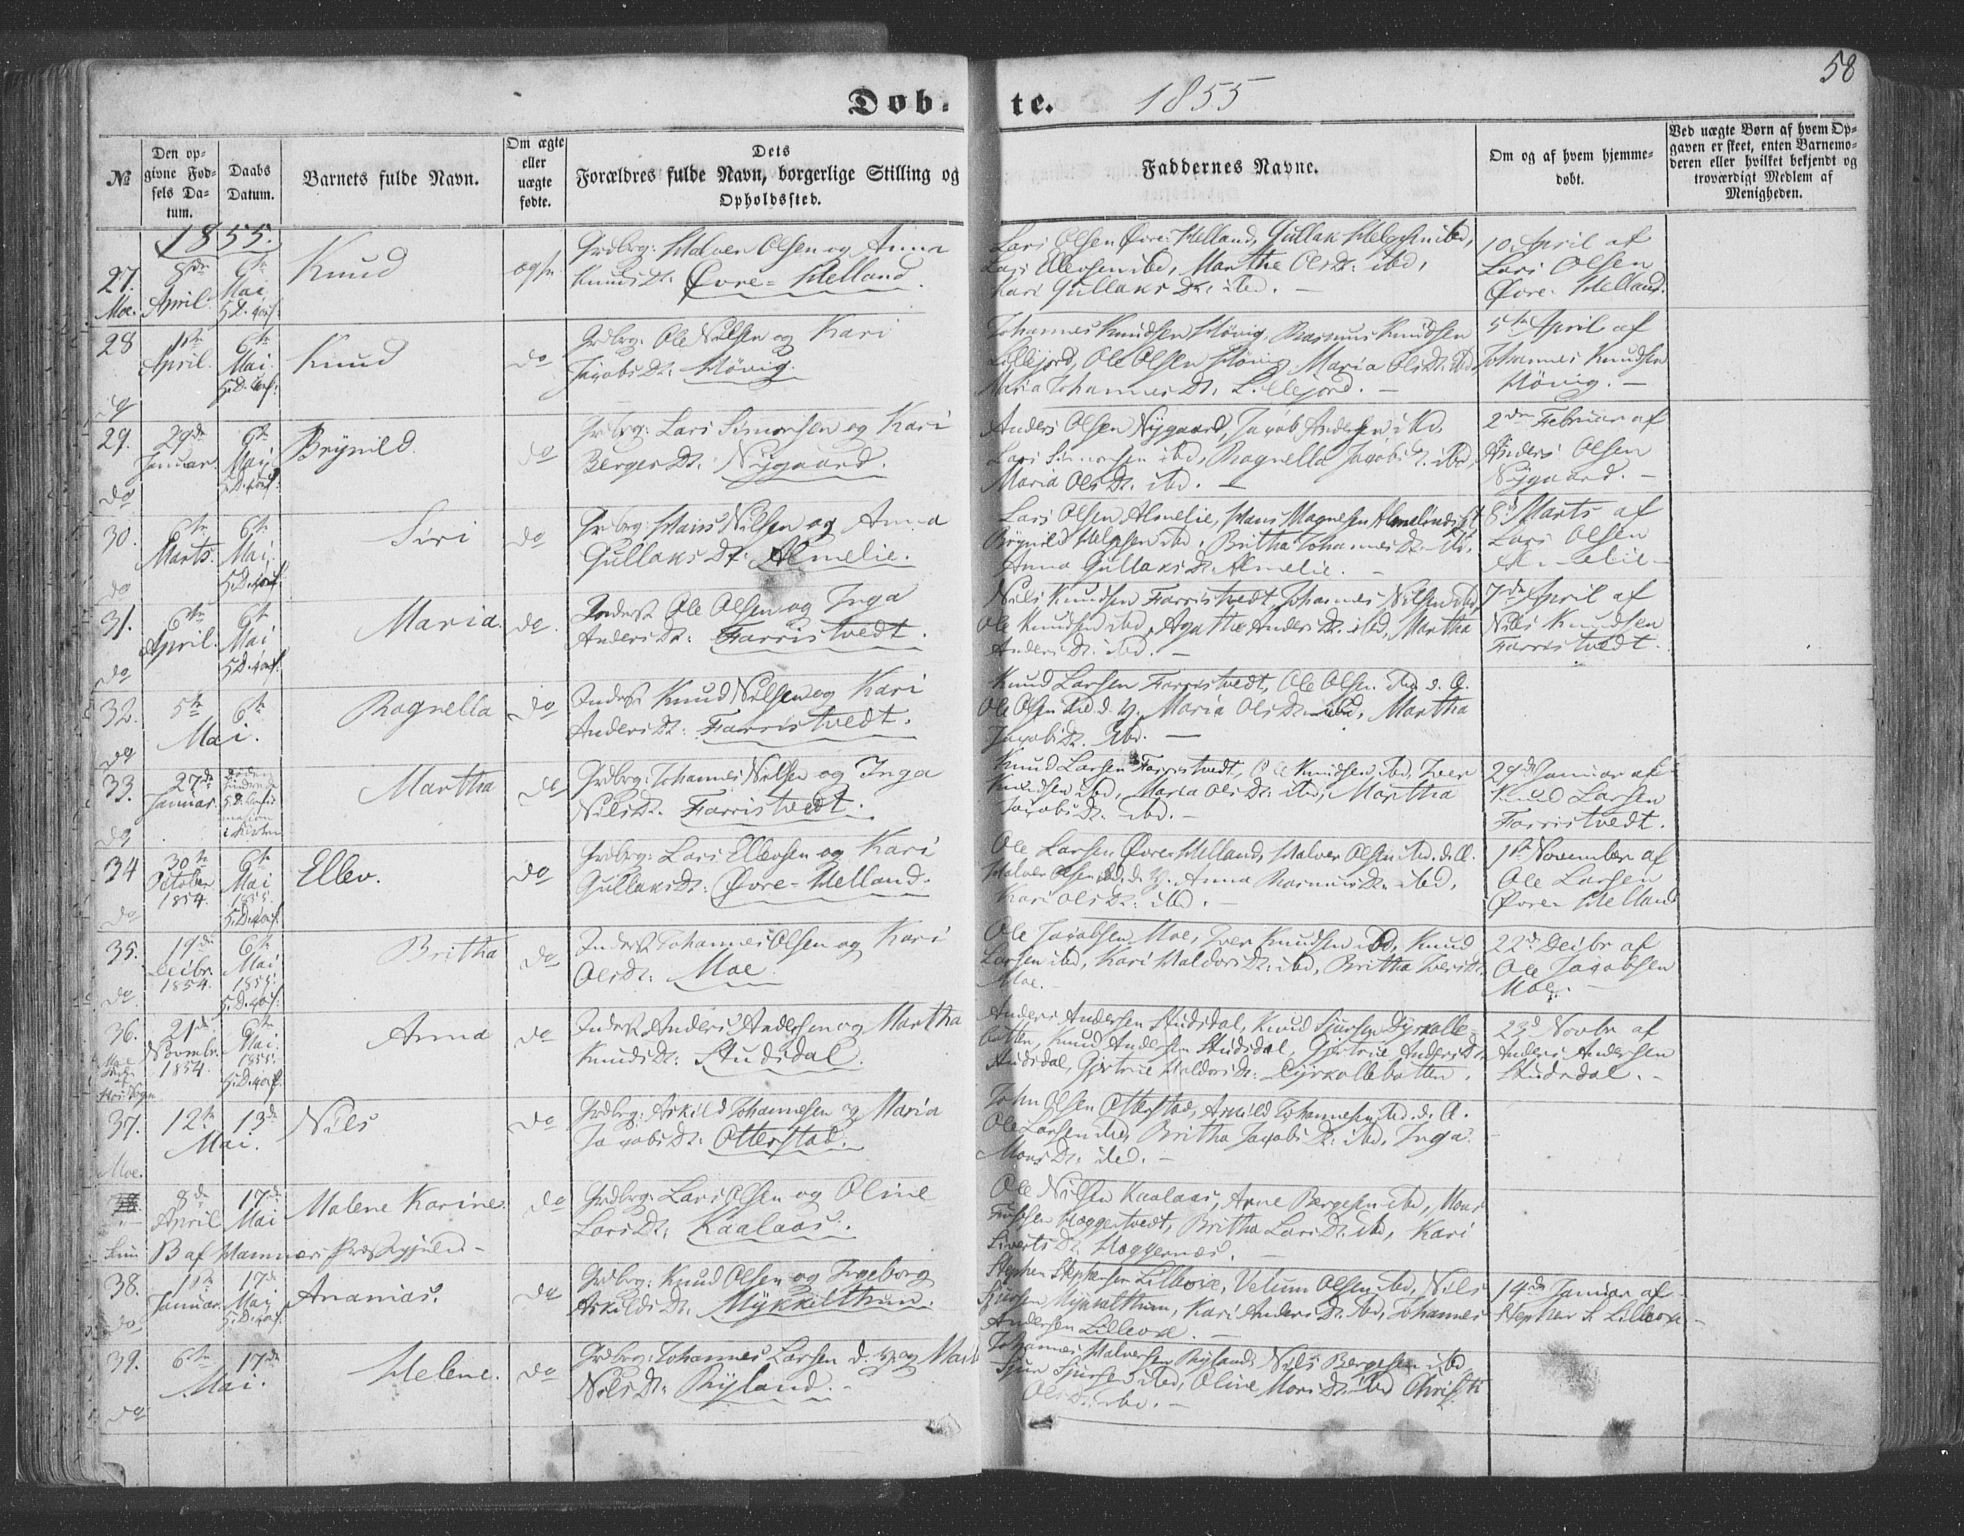 58
Døb-te. 1855
№
Den opgivne Fødsels Datum.
Daabs Datum.
Barnets fulde Navn.
Om ægte eller uægte fødte.
Dets Forældres fulde Navn, borgerlige Stilling og Opholdssted.
Faddernes Navne.
Om og af hvem hjemmedøbt.
Ved uægte Børn af hvem Opgaven er skeet, enten Barnemoderen eller hvilket bekjendt og troværdigt Medlem af Menigheden.
1855.
27. Moe.
8de April.
6te Mai
Knud
ægte
Grdbrg: Halvor Olsen og Anna
Knuds Dt: Øvre-Helland.
Lars Olsen Øvre Helland, Gullak Helgesen ibd,
Lars Ellevsen ibd, Marthe Ols Dt: ibd,
Kari Gullaks Dt: ibd. –
10. April af
Lars Olsen
Øvre Helland.
28
do
11te April.
6te Mai.
Knud
do
Grdbrg: Ole Nilsen og Kari
Jacobs Dt: Høvig.
Johannes Knudsen Høvig, Rasmus Knudsen
Lillejord, Ole Olsen Høvig, Maria Ols Dt: ibd
Maria Johannes Dt: Lillejord. –
5te April af
Johannes Knudsen
Høvig. –
29.
do
29de Januar.
6te Mai
Brynild.
do
Grdbrg: Lars Simonsen og Kari
Berges Dt: Nygaard.
Anders Olsen Nygaard, Jacob Andersen ibd,
Lars Simonsen ibd, Ragnella Jacobs Dt: ibd,
Maria Ols Dt: ibd. –
2den Februar af
Anders Olsen
Nygaard. –
30.
do
6te Marts.
6te Mai.
Siri
do
Grdbrg: Hans Nilsen og Anna
Gullaks Dt: Almelie.
Lars Olsen Almelie, Hans Magnesen
Brynild Helgesen ibd, Britha Johannes Dt: ibd,
Anna Gullaks Dt: Almelie. –
8de Marts af
Lars Olsen
Almelie –
31.
do
6te April.
6te Mai
Maria.
do.
Inderst Ole Olsen og Inga
Anders Dt: Farristvedt.
Nils Knudsen Farristvedt, Johannes Nilsen ibd,
Ole Knudsen ibd, Agatha Anders Dt: ibd, Martha
Anders Dt: ibd. –
7de April af
Nils Knudsen
Farristvedt.
32.
do
5te 6te
Mai.
Ragnella
do
Inderst Knud Nilsen og Kari
Anders Dt: Farristvedt.
Knud Larsen Farristvedt, Ole Olsen ibd d. Æ.
Ole Olsen ibd d. Y. Maria Ols Dt: ibd, Martha
Jacobs Dt: ibd. –
33.
do
27de Januar.
Martha
do
Grdbrg: Johannes Nilsen og Inga
Nils Dt: Farristvedt.
Knud Larsen Farristvedt, Ole Knudsen ibd, Iver
Knudsen ibd, Maria Ols Dt: ibd, Martha
Jacobs Dt: ibd. –
29de Januar af
Knud Larsen
Farristvedt.
34
do
30te October 1854.
6te Mai 1855.
Ellev.
do
Grdbrg: Lars Ellevsen og Kari
Gullaks Dt: Øvre-Helland.
Ole Larsen Øvre Helland, Halvor Olsen ibd. d. Æ.
Halvor Olsen ibd. d. Y. Anna Rasmus Dt: ibd,
Kari Ols Dt: ibd. –
1ste November af
Ole Larsen
Øvre Helland
35.
do
19de Decbr 1854.
6te Mai 1855.
Britha
do
Inderst Johannes Olsen og Kari
Ols Dt: Moe.
Ole Jacobsen Moe, Iver Knudsen ibd, Knud
Larsen ibd, Kari Haldors Dt: ibd, Britha Ivers Dt:
Moe. –
22de Decbr af
Ole Jacobsen
Moe. –
36.
21de Novembr. 1854.
6te Mai. 1855.
Anna
do
Inderst Anders Andersen og Martha
Knuds Dt: Studsdal.
Anders Andersen Studsdal, Knud Sjursen Dyrkollebotten,
Knud Andersen Studsdal, Gjertrue Anders Dt:
Studsdal, Gjertrue Haldors Dt: Dyrkollebotten.
23de Novbr af
Anders Andersen
Studsdal. –
37.
Moe.
12te 13de
Mai.
Nils
do
Grdbrg: Askild Johannesen og Maria
Jacobs Dt: Otterstad.
John Olsen Otterstad, Askild Johannesen ibd. d. Æ.
Ole Larsen ibd, Britha Jacobs Dt: ibd, Inga
Mons Dt: ibd. –
8de April
17de Mai
Malene Karine.
do
Grdbrg: Lars Olsen og Oline
Lars Dt: Kaalaas.
B af Hammers Præstegjeld –
Ole Nilsen Kaalaas, Arne Bergesen ibd, Mons
Hoggestvedt, Britha Lars Dt: ibd, Kari
Siverts Dt: Hoggernæs. –
38.
do
11te Januar.
17de Mai
Ananias.
do
Grdbrg: Knud Olsen og Ingeborg
Askilds Dt: Mykkelthun.
Stephen Stephensen Lilleoxe, Vetum Olsen ibd, Nils
Sjursen Mykkelthun, Kari Anders Dt: ibd, Johannes
Andersen Lilleoxe. –
14de Januar af
Stephen S. Lilleoxe –
39.
do
6te 17de
Mai.
Helene.
do
Grdbrg: Johannes Larsen d. y. og
Nils Dt: Ryland. –
Johannes Halvorsen Ryland, Nils Bergesen ibd,
Sjur Sjursen ibd, Oline Mons Dt: ibd Christi
Ols Dt: ibd. –